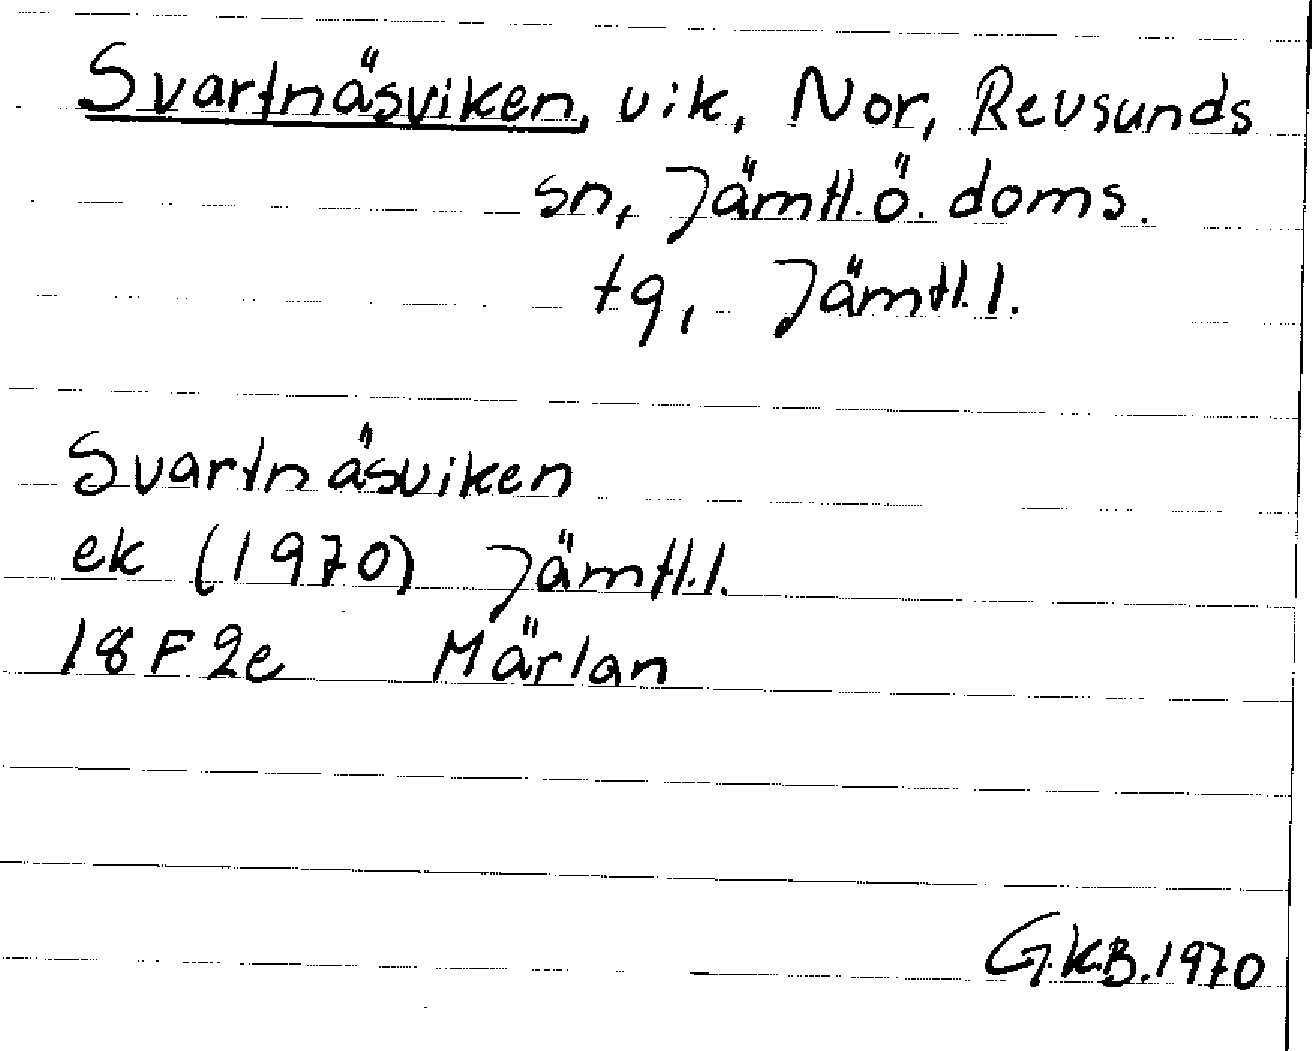 Svartnäsviken, vik, Nor, Revsunds
sn, Jämtl.ö. doms.
tg, Jämtl.l.
Svartnäsviken
ek (1970) Jämtl.l.
18F2e Märlan
G.K.B.1970